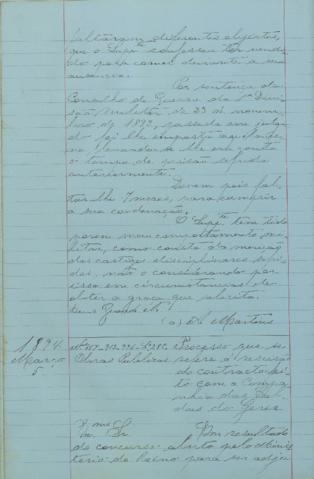 faltaram differentes objectos,
que o Supe confessou ter vendi
do para comer durante a sua
ausencia.
Por sentença do
Conselho de Guerra da 1ª Divi
são Militar de 23 de novem
bro de 1892, passada em julga
do foi lhe imposta aquella pe
na levando-se lhe em conta
o tempo de prisão sofrida
anteriormente.
Devem pois fal
tar lhe 7 mezes, para cumprir
a sua condenação.
O Supe tem tido
porem mau comportamento mi
litar, como consta da menção
dos castigos disciplinares sofri
dos, não o considerando por
isso em circumstancias de
obter a graça que solicita.
Deus Guarde
(a) Martins
1894
Março
5
Processo que se
Obras Publicas refere á rescisão
do contracto fei
to com a Compa
nhia das Cal
das do Gerez
Sr Em resultado
do concurso aberto pelo Minis
terio do Reino para ser adju